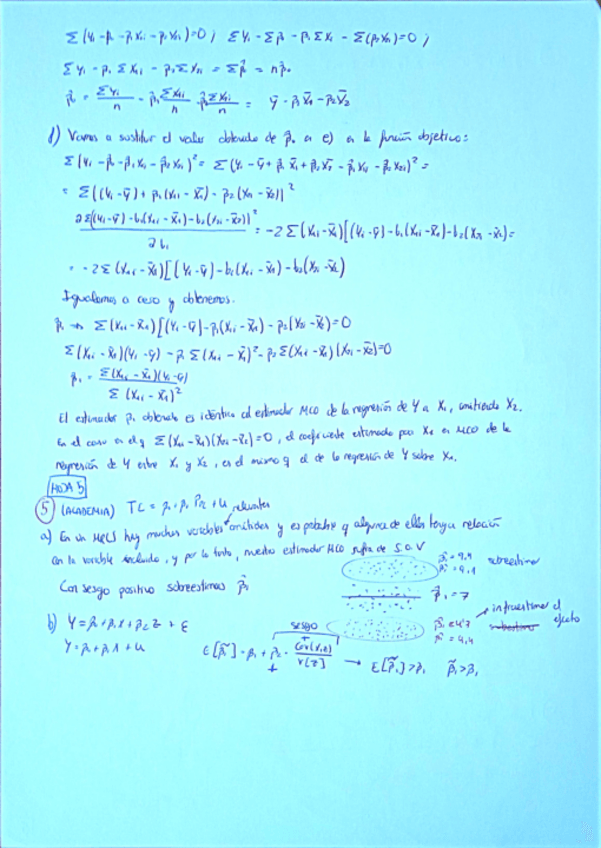 Σ(Yi - β̂0 - β̂1X1i - β̂2X2i)=0 ; ΣYi - Σβ̂0 - β̂1ΣX1i - Σ(β̂2X2i)=0 ;
ΣYi - β̂1ΣX1i - β̂2ΣX2i = Σβ̂0 = nβ̂0
β̂0 = ΣYi/n - β̂1 ΣX1i/n - β̂2 ΣX2i/n = ȳ - β̂1X̄1 - β̂2X̄2
f) Vamos a sustituir el valor obtenido de β̂0 a e) en la función objetivo:
Σ(Yi - β̂0 - β̂1X1i - β̂2X2i)² = Σ(Yi - ȳ + β̂1X̄1 + β̂2X̄2 - β̂1X1i - β̂2X2i)² =
= Σ((Yi - ȳ) + β1(X1i - X̄1) - β2(X2i - X̄2))²
∂Σ[(Yi - ȳ) - b1(X1i - X̄1) - b2(X2i - X̄2)]² / ∂b1 = -2Σ(X1i - X̄1)[(Yi - ȳ) - b1(X1i - X̄1) - b2(X2i - X̄2)=
= -2Σ(X1i - X̄1)[(Yi - ȳ) - b1(X1i - X̄1) - b2(X2i - X̄2)
Igualamos a cero y obtenemos.
β̂1 → Σ(X1i - X̄1)[(Yi - ȳ) - β1(X1i - X̄1) - β2(X2i - X̄2)=0
Σ(X1i - X̄1)(Yi - ȳ) - β̂1Σ(X1i - X̄1)² - β2Σ(X1i - X̄1)(X2i - X̄2)=0
β̂1 = Σ(X1i - X̄1)(Yi - ȳ) / Σ(X1i - X̄1)²
El estimador β̂1 obtenido es idéntico al estimador MCO de la regresión de Y a X1, omitiendo X2.
En el caso en el q Σ(X1i - X̄1)(X2i - X̄2)=0, el coeficiente estimado para X1 en MCO de la
regresión de Y entre X1 y X2, es el mismo q el de la regresión de Y sobre X1.
HOJA 5
5 (ACADEMIA) TC = β0 + β1 PR + u relevantes
a) En un MRLS hay muchas variables omitidas y es probable q alguna de ellas tenga relación
con la variable incluida, y por lo tanto, nuestro estimador MCO sufre de S.O.V
Con sesgo positivo sobreestimas β̂1
β̂1 = 9,9
β̂1 = 9,1
sobreestimar
β1 = 7
infraestimar el efecto
β̂1 = 4,7
β̂1 = 4,4
b) Y = β0 + β1X + β2Z + ε
Y = β0 + β1X + u
sesgo
E[β̃1] = β1 + β2 · Cov(X,Z)/V[Z] → E[β̃1] > β1 β̃1 > β1